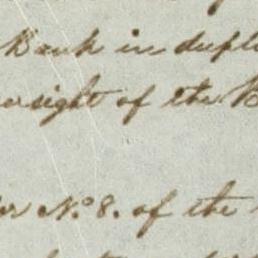 Bank in dupl
ersight of the B
er No. 8. of the